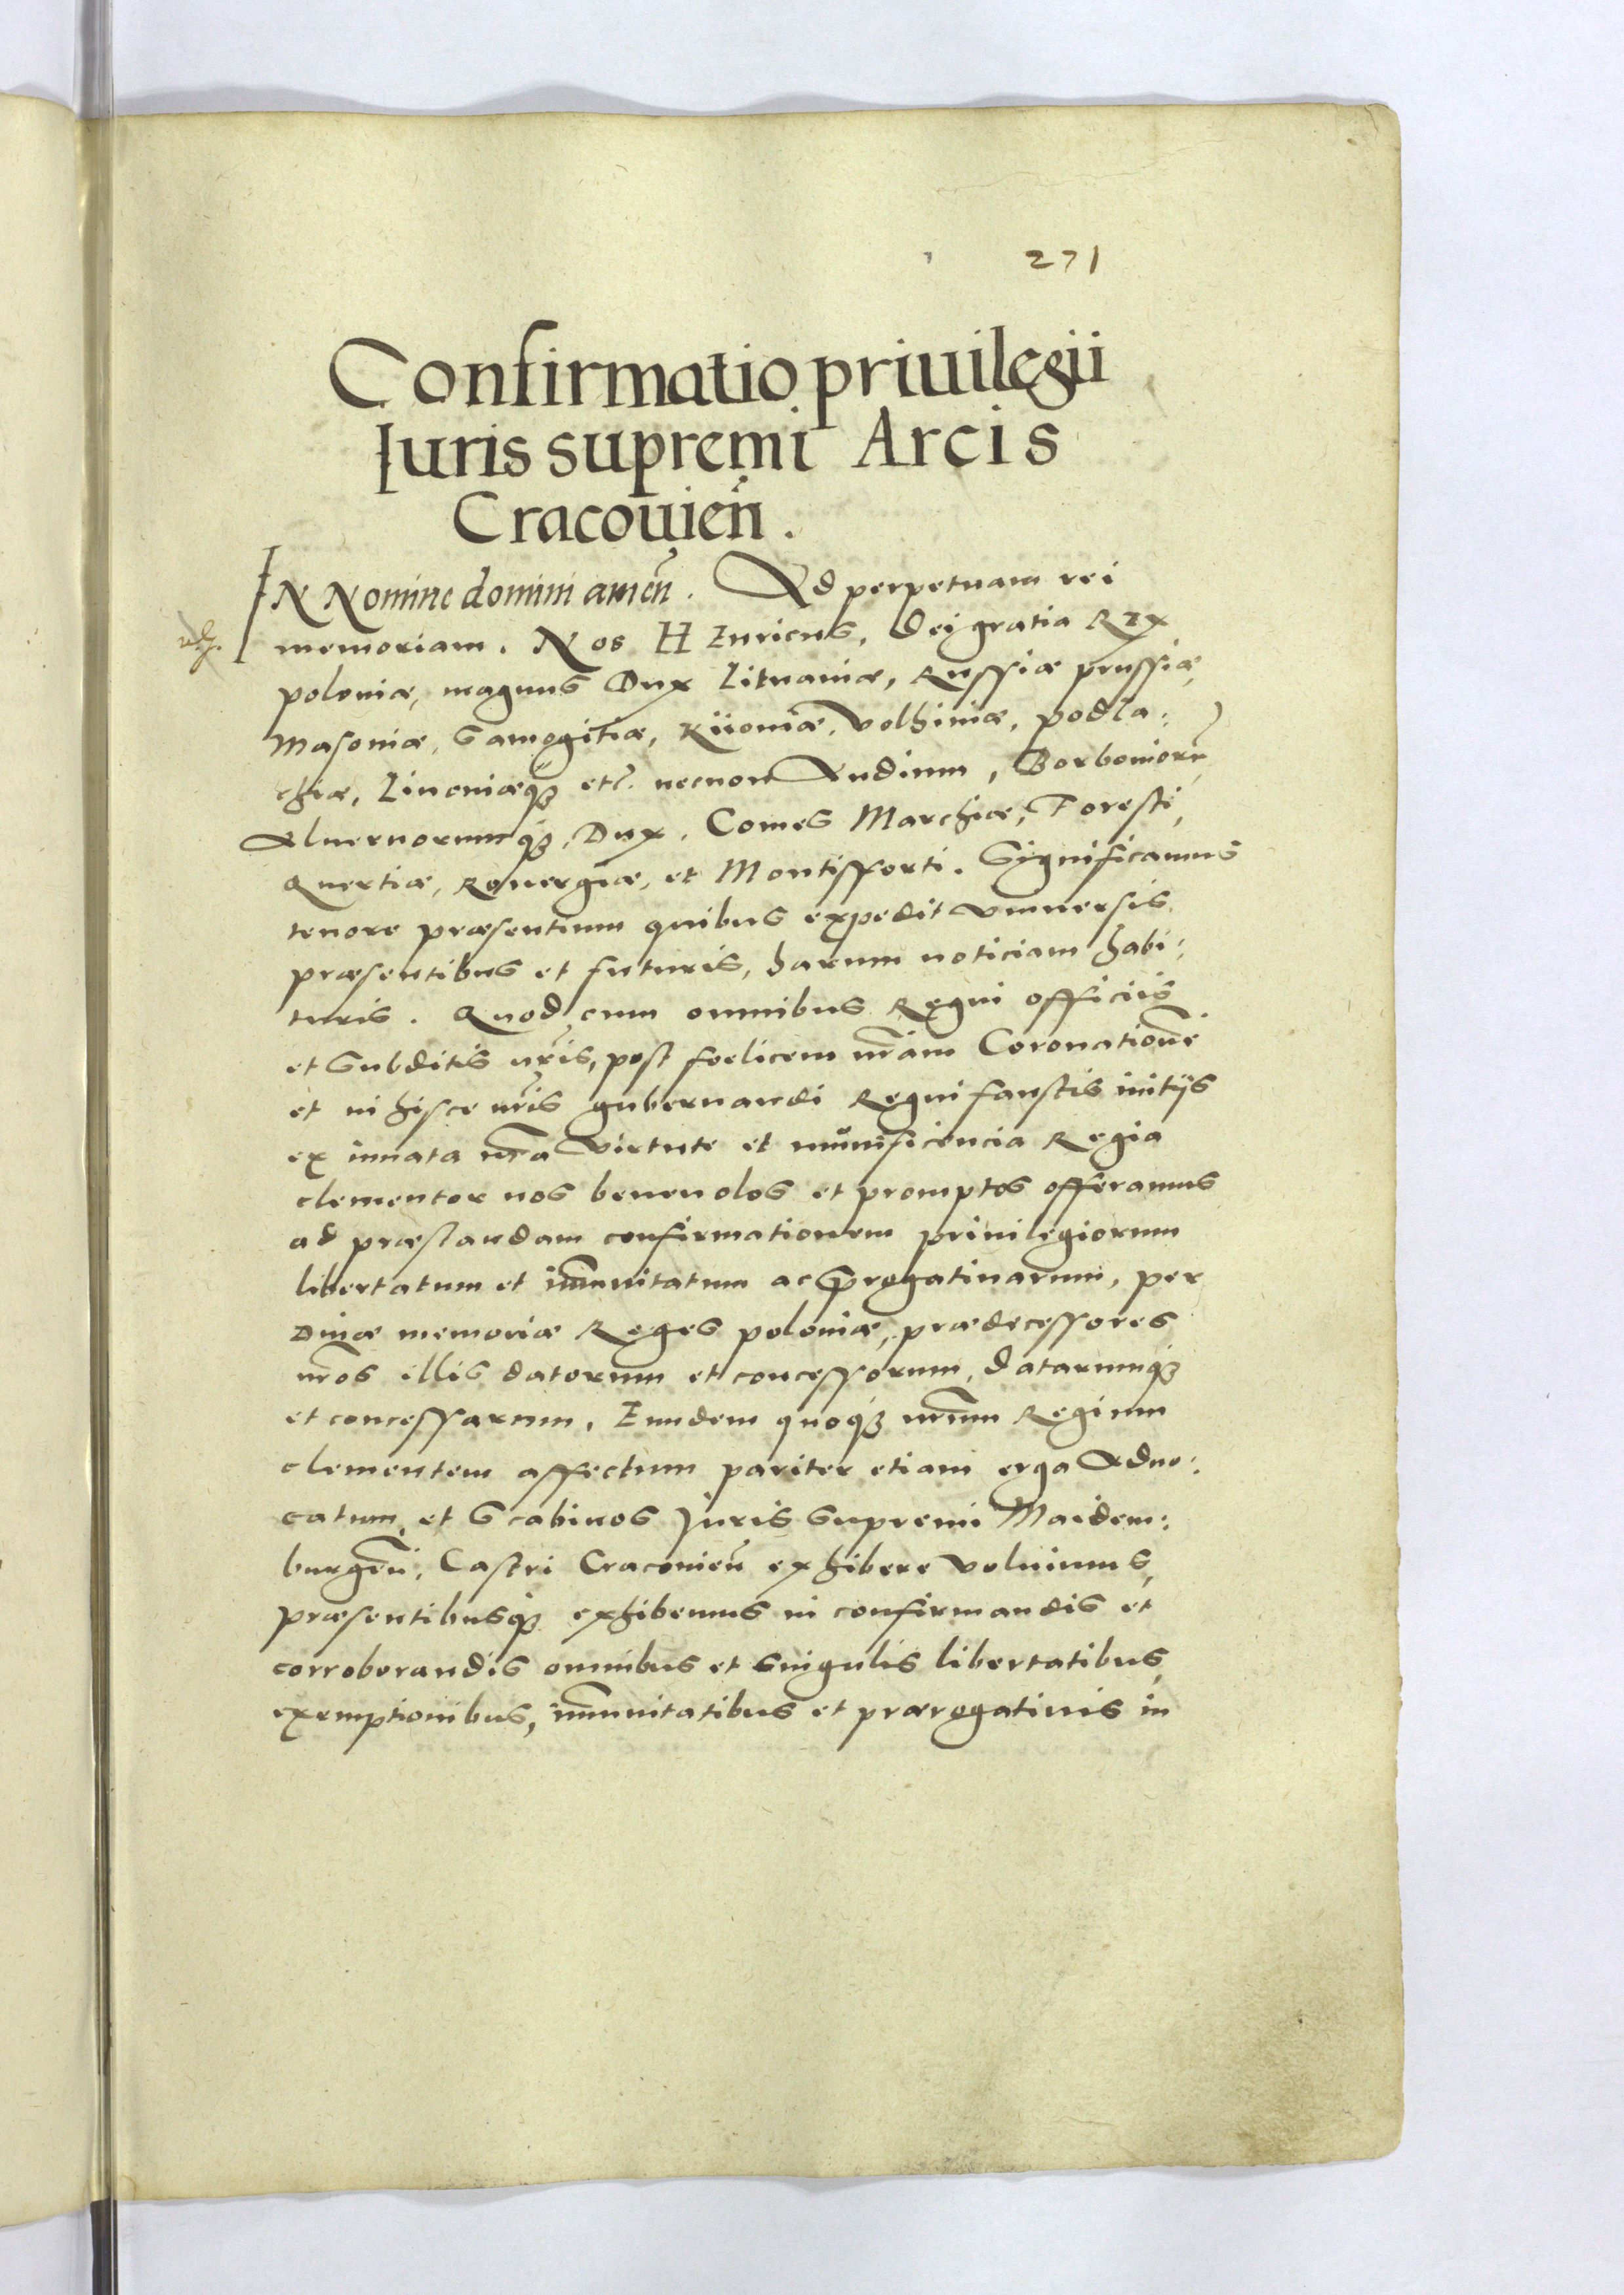 271
Confirmatio priuilegii
Iuris supremi Arcis
Cracouien̄.
IN Nomine domini amen̄. Ad perpetuam rei
memoriam. Nos HEnricus, Dei gratia REx
poloniæ, magnus Dux Lituaniæ, Russiæ prussiæ,
Masoniæ, Samogitiæ, Kiioniæ, Volhiniæ, podla:
chiæ, Liuoniæq₃ etc̃. necnon Andium, Borboniorū,
Aluernorumq₃, Dux. Comes Marchiæ, Foresti,
Quertiæ, Rouergiæ, et Montisforti. Significamus
tenore præsentium quibus expedit vniuersis
præsentibus et futuris, harum noticiam habi:
turis. Quod cum omnibus Regni officiis
et Subditis nr̃is, post foelicem nr̃am Coronationē
et in hisce nr̃is gubernandi Regni faustis initijs
ex innata nr̃a virtute et munificencia Regia
clementer nos beneuolos et promptos offeramus
ad præstandam confirmationem priuilegiorum
libertatum et im̄unitatum ac prerogatiuarum, per
Diuæ memoriæ Reges poloniæ, prædecessores
nr̃os illis datorum et concessorum, datarumq₃
et concessarum. Eundem quoq₃ nr̃um Regium
clementem affectum pariter etiam erga Aduo:
catum et Scabinos Juris Supremi Maidem:
burgen̄, Castri Cracouien̄ exhibere voluimus,
præsentibusq₃ exhibemus in confirmandis et
corroborandis omnibus et singulis libertatibus,
exemptionibus, im̄unitatibus et prærogatiuis in